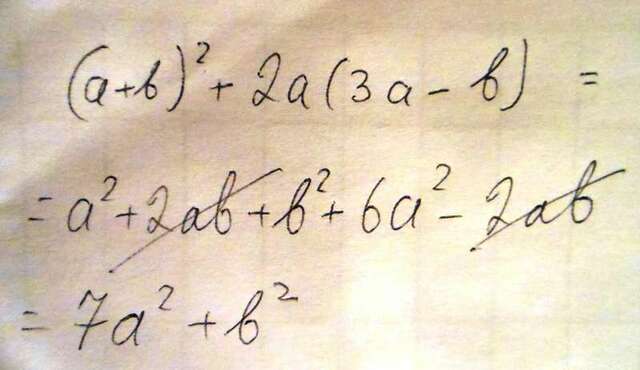 (a+b)² + 2a(3a - b) =
= a² + 2ab + b² + 6a² - 2ab
= 7a² + b²